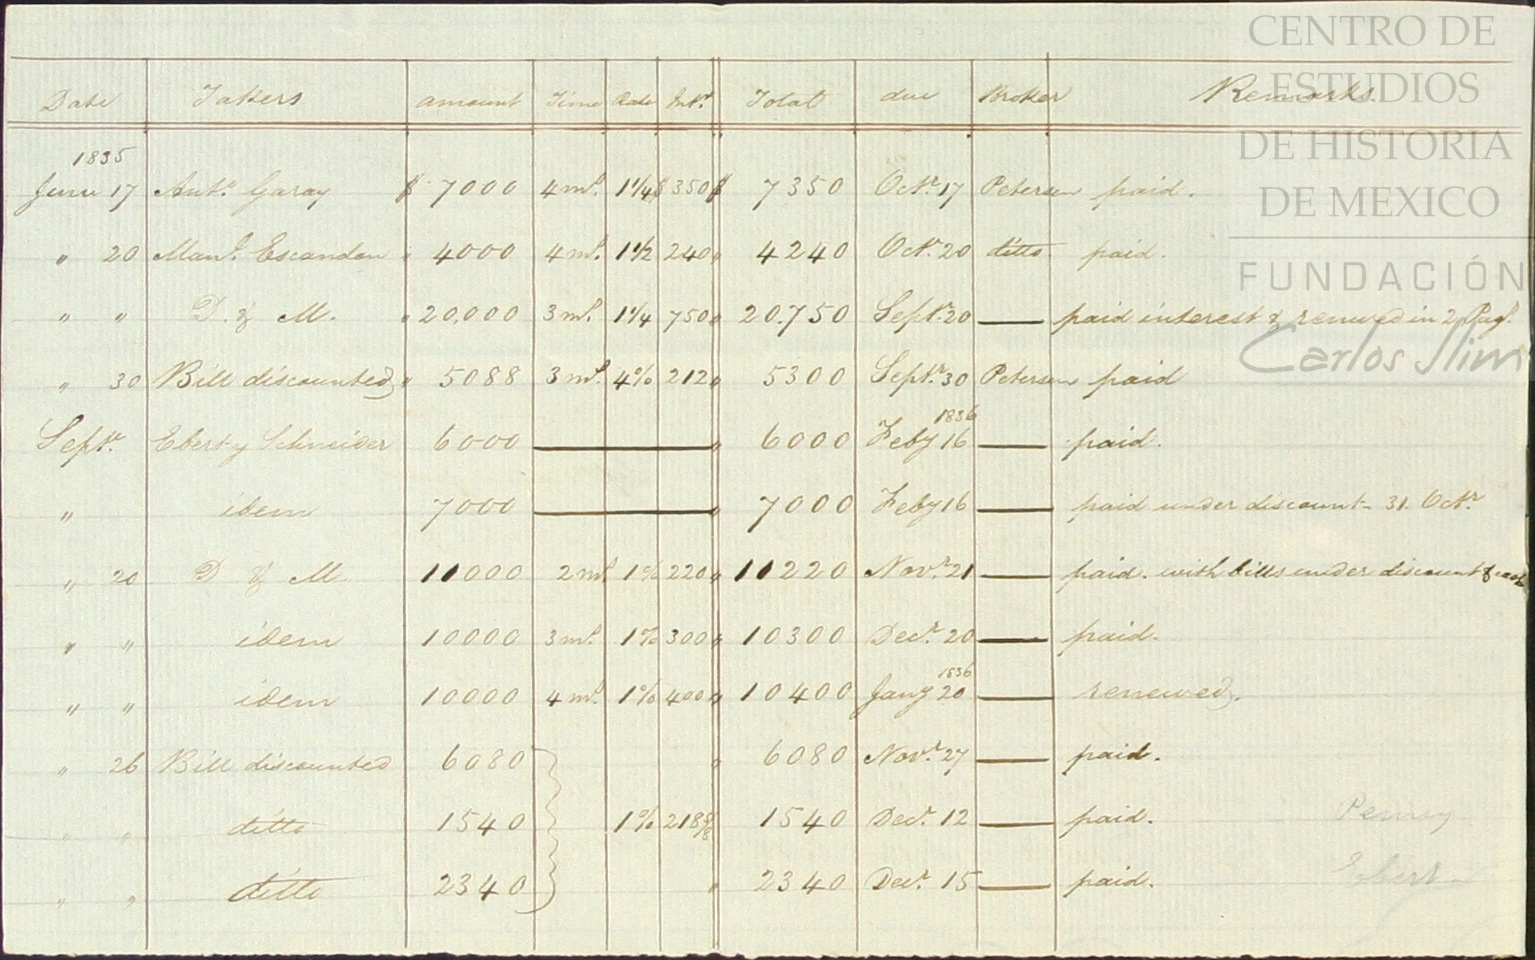 CENTRO DE
ESTUDIOS
DE HISTORIA
DE MEXICO
FUNDACIÓN
Carlos Slim
Date Takers amount Time Rate Intt. Total due Broker Remarks.
1835
June 17 Anto. Garay $ 7000 4 ms. 1¼ $ 350 $ 7350 Octr. 17 Petersen paid.
" 20 Manl. Escandon " 4000 4 ms. 1½ 240 " 4240 Octr. 20 ditto paid.
" " D. & M. " 20,000 3 ms. 1¼ 750 " 20.750 Septr. 20 — paid interest & renewed in 2
" 30 Bill discounted " 5088 3 ms. 4% 212 " 5300 Septr. 30 Petersen paid
1836
Septr. Ebert y Schneider 6000 — " 6000 Feby 16 — paid.
" idem 7000 — " 7000 Feby 16 — paid under discount - 31. Octr.
" 20 D & M. 11000 2 ms 1% 220 " 11220 Novr. 21 — paid. with bills under discount & cash
" " idem 10000 3 ms. 1% 300 " 10300 Decr. 20 — paid.
1836
" " idem 10000 4 ms. 1% 400 " 10400 Jany 20 — renewed.
" 26 Bill discounted 6080 " 6080 Novr. 27 — paid.
" " ditto 1540 1% 218 1540 Decr. 12 — paid. Penny
" " ditto 2340 " 2340 Decr. 15 — paid. Ebert